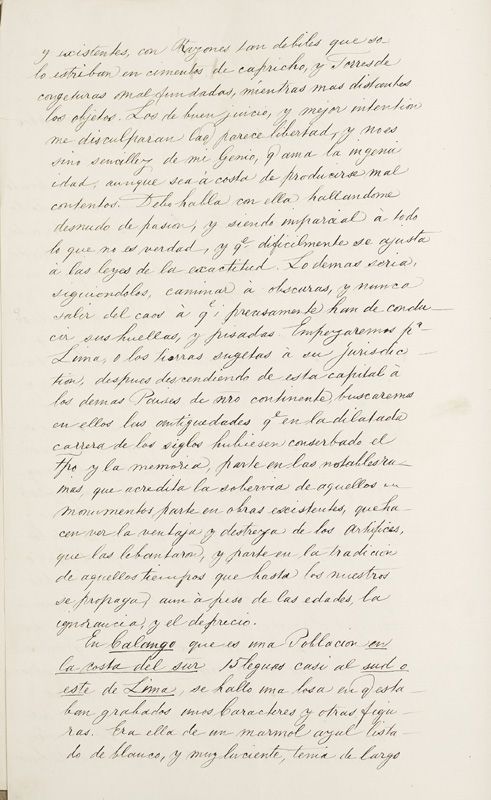 y existentes, con Razones tan debiles que so
lo estriban en cimentos de capricho, y Torres de
congeturas mal fundadas, mientras mas distantes
los objetos. Los de buen juicio, y mejor intention
me disculparan lo q parece libertad, y no es
sino sencilles de mi Genio, q ama la ingenu
idad, aunque sea à costa de producirse mal
contentos. Debo habla con ella hallandome
desnudo de pasion, y siendo imparcial à todo
lo que no es verdad, y qe dificilmente se ajusta
à las leyes de la exactitud. Lo demas seria,
siguiendolos, caminar à obscuras, y nunca
salir del caos à qe, precisamente han de condu
cir sus huellas, y pisadas. Empezaremos pr
Lima, o los tierras sugetas à su Jurisdic
tion, despues descendiendo de esta capital à
los demas Paises de nro continente, buscaremos
en ellos las antiguedades qe en la dilatada
carrera de los siglos hubiesen conserbado el
Tpo y la memoria, parte en las notables rui
nas, que acredita la sobervia de aquellos
monumentos parte en obras excistentes, que ha
cen ver la ventaja y destreza de los Artifices,
que las lebantaron, y parte en la tradicion
de aquellos tiempos que hasta los nuestros
se propaga, aun à peso de las edades, la
ignorancia, y el desprecio.
En Calango, que es una Poblacion en
la costa del sur 15 leguas casi al sud o
este de Lima, se hallo una losa en q esta
ban grabados unos Caracteres y otras figu
ras. Era ella de un marmol azul lista
do de blanco, y muy luciente, tenia de largo